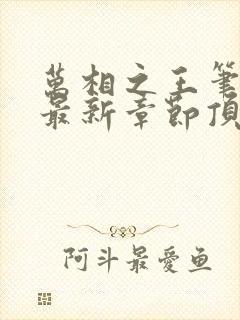 萬相之王筆
最新章節頂
阿斗最愛鱼